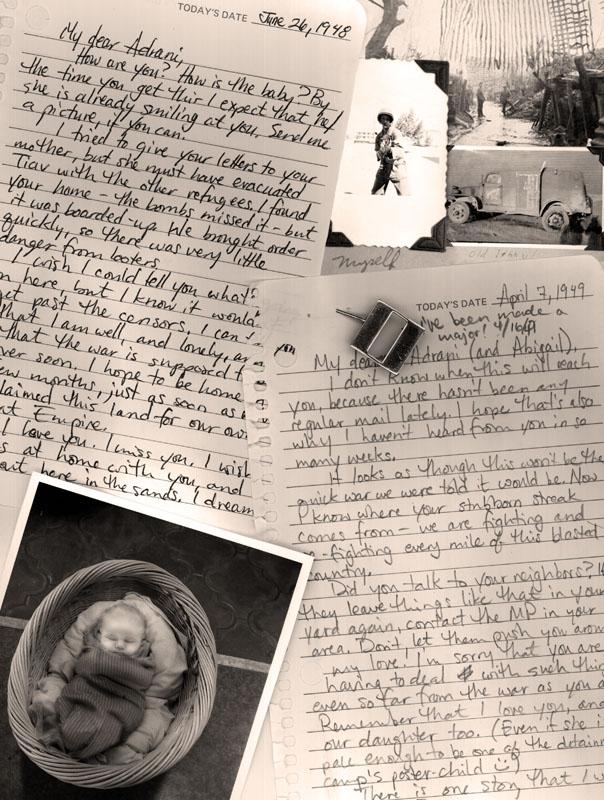 TODAY'S DATE June 26, 1948
My dear Adrani,
How are you? How is the baby? By
the time you get this I expect that
she is already smiling at you. Send me
a picture, if you can.
I tried to give your letters to your
mother, but she must have evacuated
Tiav with the other refugees. I found
your home - the bombs missed it - but
it was boarded-up. We brought order
quickly, so there was very little
danger from looters.
I wish I could tell you what's
here but I know it would
past the censors. I can
that I am well, and lonely,
that the war is supposed
soon. I hope to be home
months, just as soon as
claimed this land for our
Empire.
I love you. I miss you. I wish
at home with you, and
out here in the sands. I dream
Myself
TODAY'S DATE April 7, 1949
I've been made a
major!
My dear Adrani (and Abigail),
I don't know when this will reach
you, because there hasn't been any
regular mail lately. I hope that's also
why I haven't heard from you in so
many weeks.
It looks as though this won't be the
quick war we were told it would be. Now
I know where your stubborn streak
comes from - we are fighting and
-fighting every mile of this blasted
country.
Did you talk to your neighbors? If
they leave things like that in your
yard again, contact the MP in your
area. Don't let them push you around
my love! I'm sorry that you are
having to deal with such things
even so far from the war as you
Remember that I love you, and
our daughter too. (Even if she is
pale enough to be one of the
camp's poster-child
There is one story that I